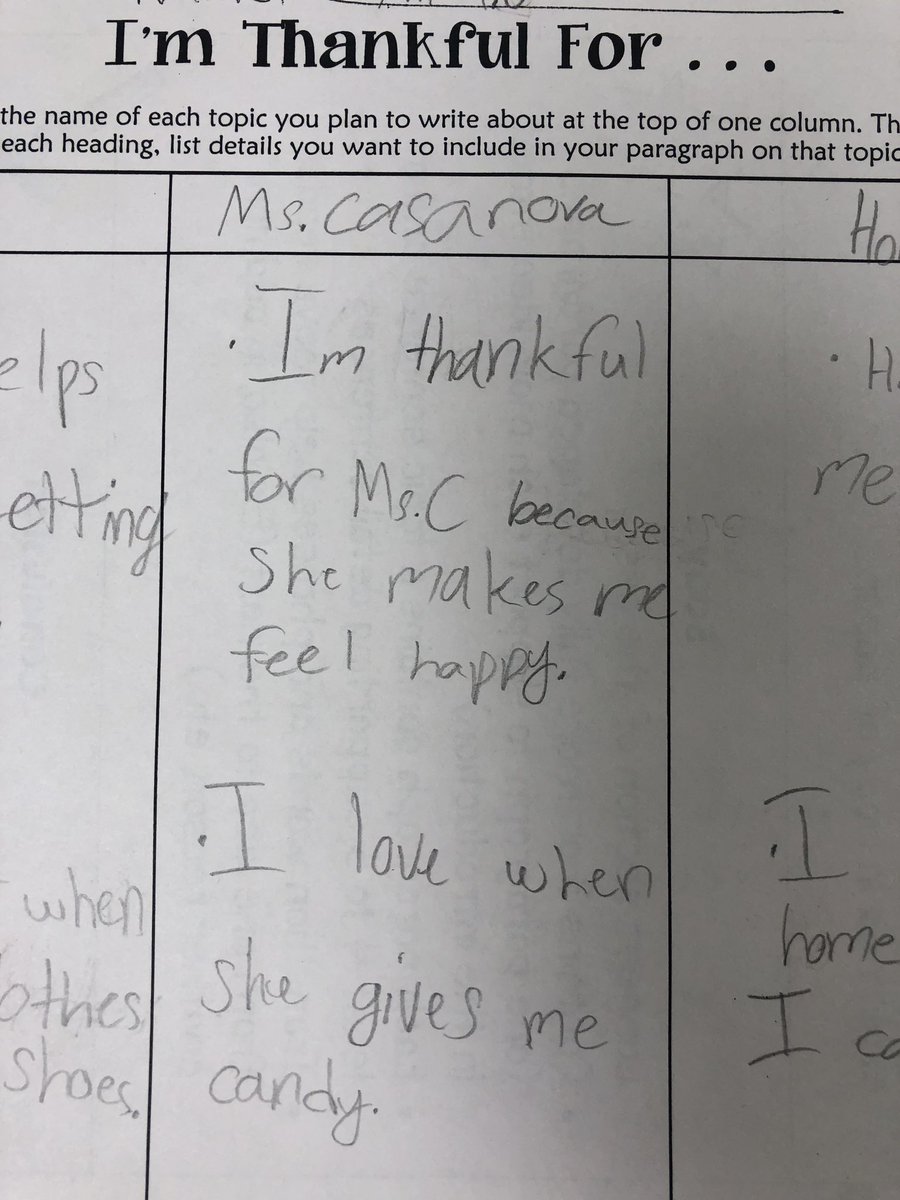 I'm Thankful For . . .
the name of each topic you plan to write about at the top of one column. Th
each heading, list details you want to include in your paragraph on that topic
Ms. Casanova
Ho
elps
etting
when
othes
shoes.
· Im thankful
for Ms.C because
she makes me
feel happy.
· I love when
she gives me
candy.
· H
me
· I
home
I ca